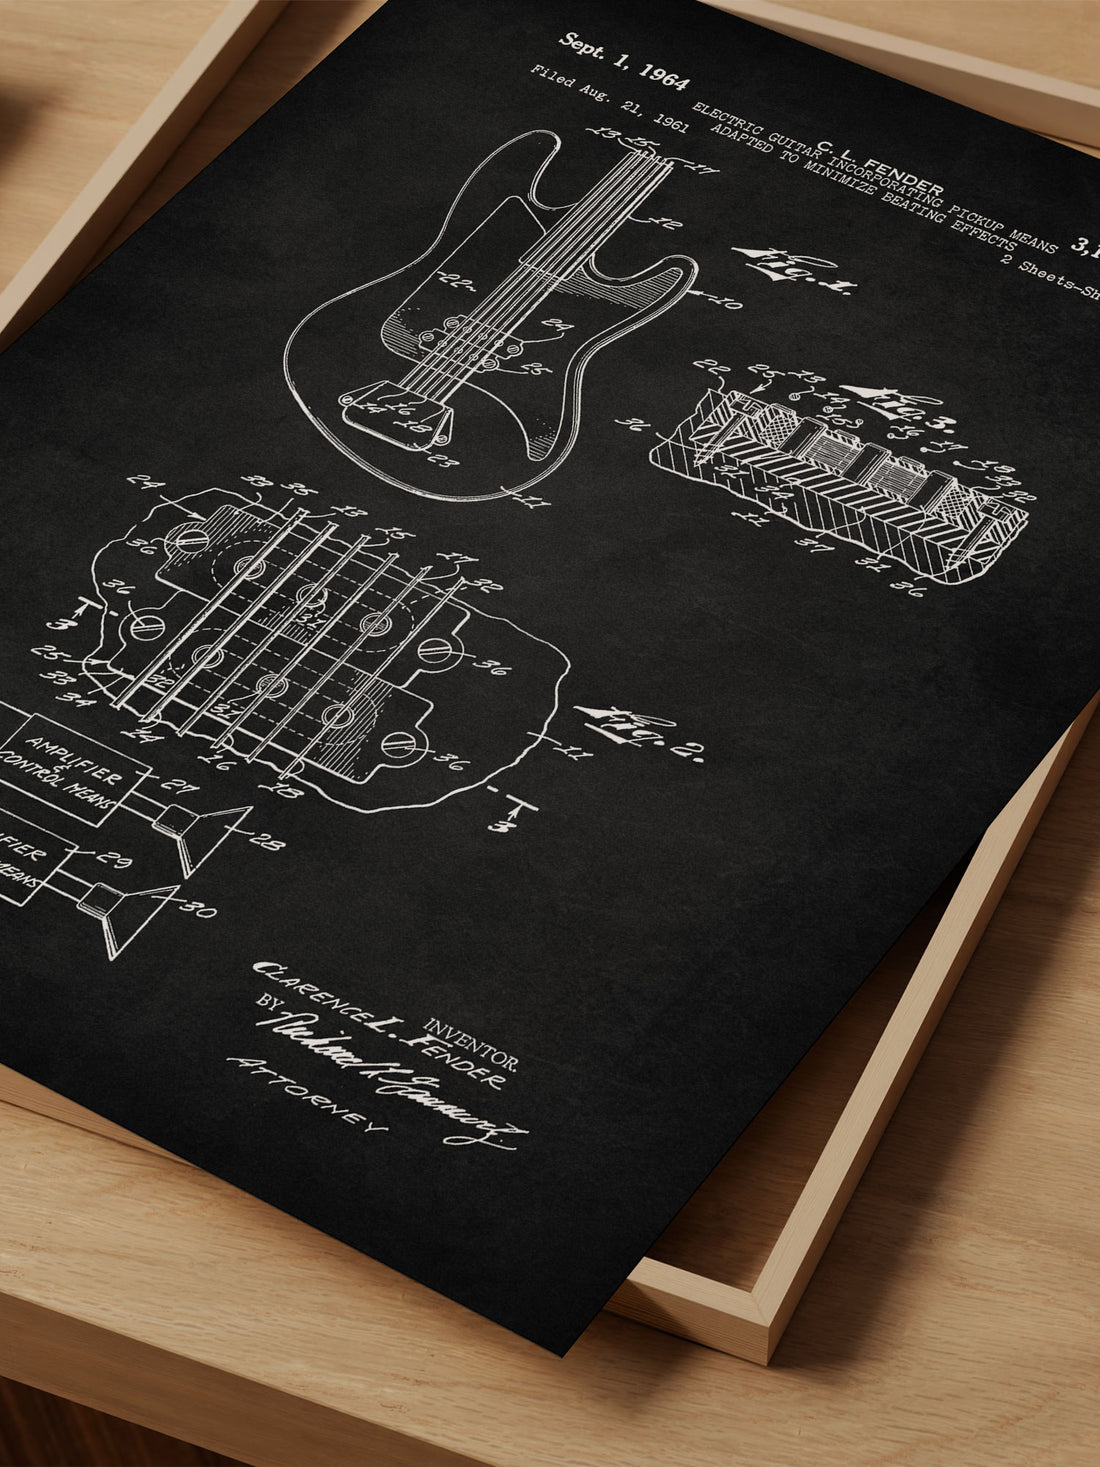 Sept. 1, 1964
C. L. FENDER
3,1
Filed Aug. 21, 1961
ELECTRIC GUITAR INCORPORATING PICKUP MEANS
ADAPTED TO MINIMIZE BEATING EFFECTS
2 Sheets-Sh
13 15 17
12
Fig. 1.
10
22
24
25
14 16 18
23
11
22 25 13 14 15 Fig. 3.
16 17 18 33 32
36
31 34
11 37 31 36
24 33 35 13 15 17 32
36
36
31
3
36
25
33
34
32
31
14 16 18
36
Fig. 2.
11
3
AMPLIFIER
&
CONTROL MEANS
27
28
IFIER
MEANS
29
30
INVENTOR.
CLARENCE L. FENDER
BY
ATTORNEY